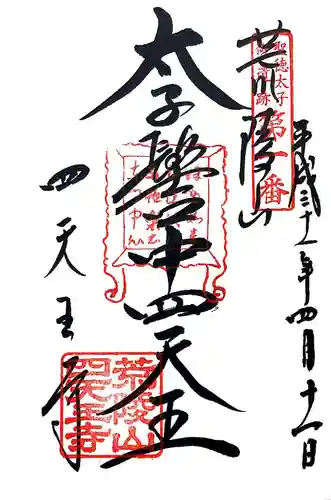 平成三十一年四月十一日
荒陵山
聖徳太子
御遺跡
第一番
太子鬘中四天王
四天王寺
荒陵山
四天王寺